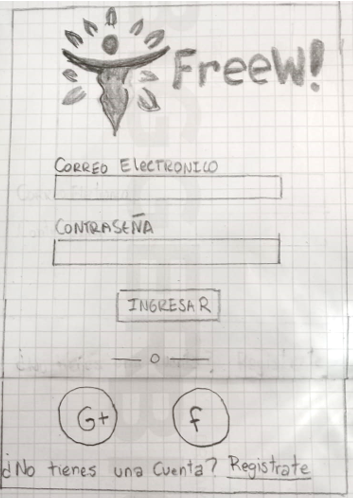 FreeW!
CORREO ElecTRONICO
CONTRASEÑA
INGRESAR
O
G+ f
¿No tienes una Cuenta? Registrate